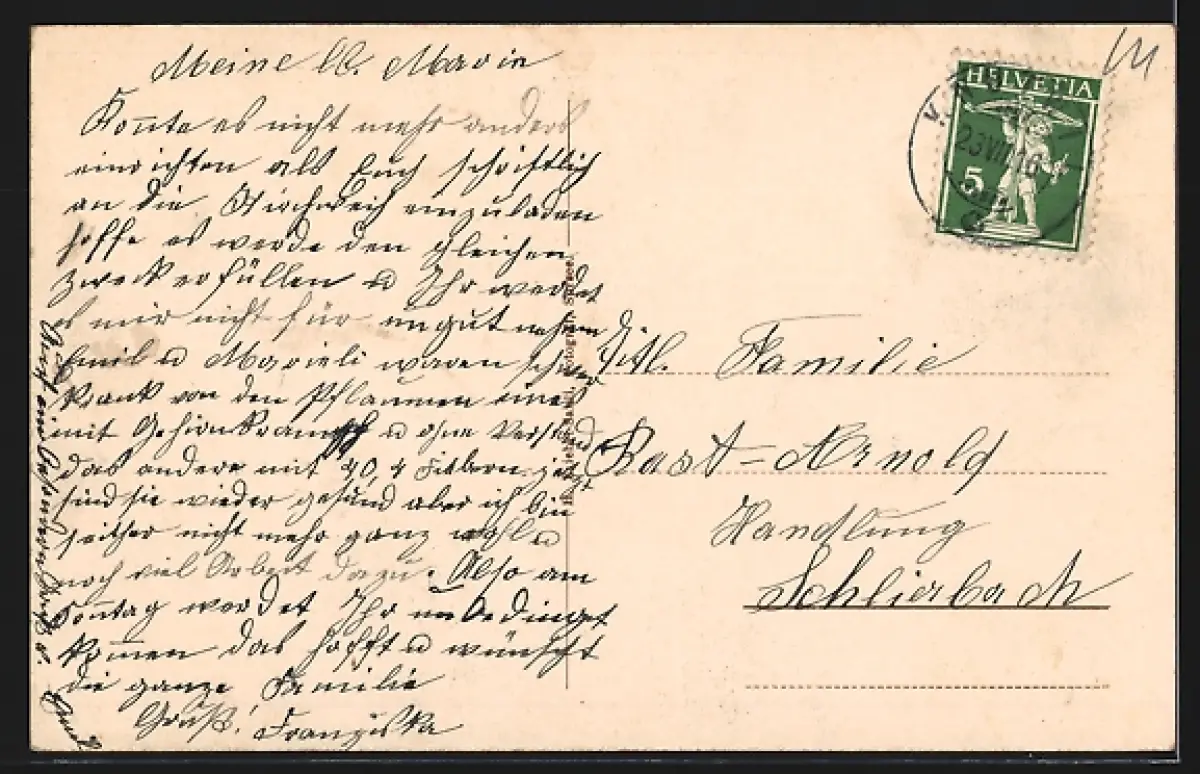 Meine lb. Marie
Konnte es nicht mehr anders
einrichten als Euch schriftlich
an die Kirchweih einzuladen
hoffe es werde den gleichen
Zweck erfüllen u Ihr werdet
es mir nicht für ungut nehmen
Emil u Marieli waren schwer
krank von den Pflaumen eines
mit Gehirnkrampf u ohne Verstand
das andere mit 40,4 Fiebern jetzt
sind sie wieder gesund aber ich bin
seither nicht mehr ganz wohl u
noch viel Arbeit dazu. Also am
Sonntag werdet Ihr unbedingt
kommen das hofft u wünscht
die ganze Familie
Gruß! Franziska
HELVETIA
5
23 VIII
Titl. Familie
Kast-Arnold
Handlung
Schlierbach